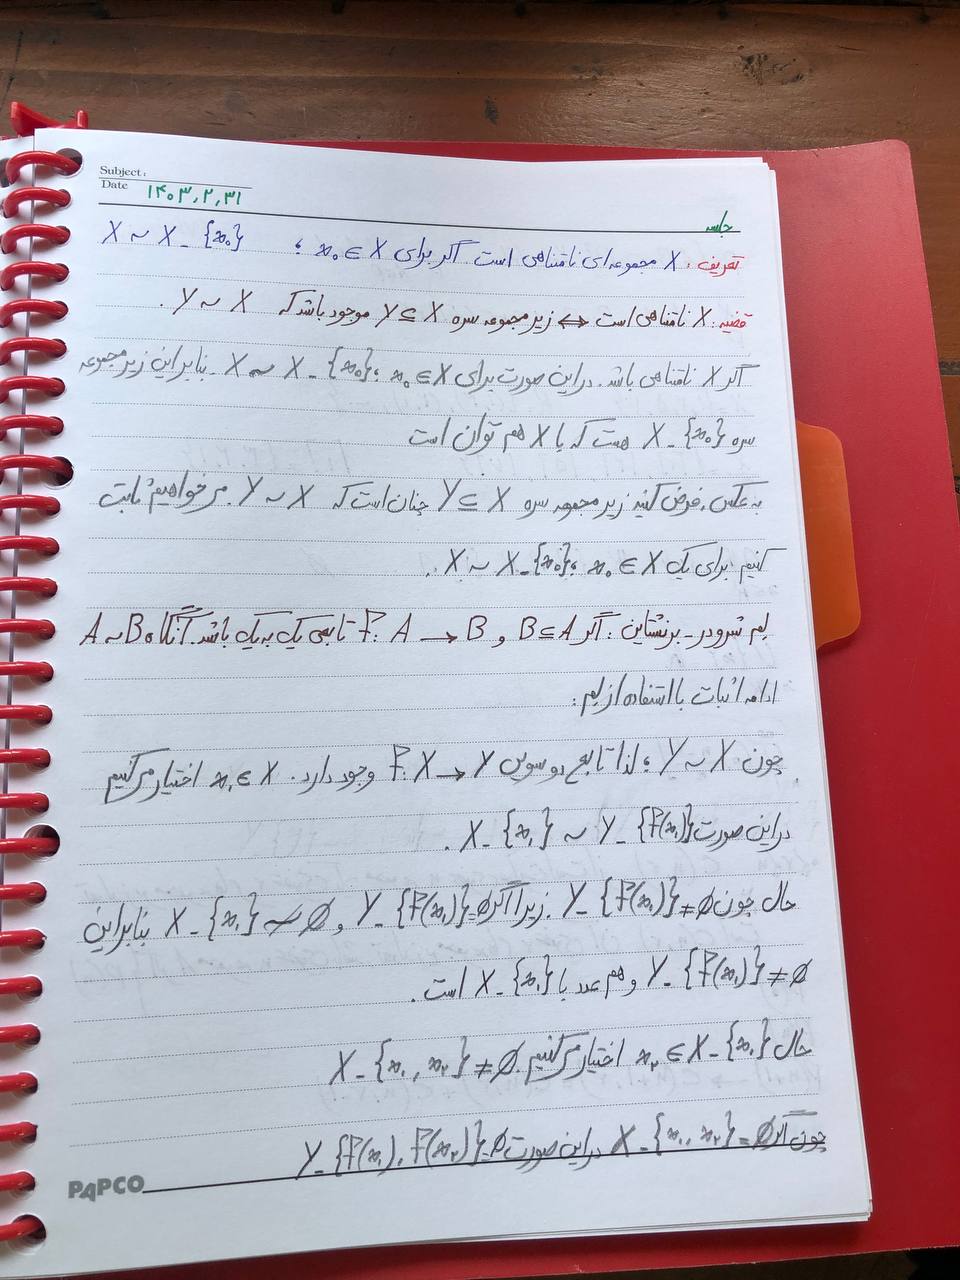 Subject :
Date ۱۴۰۳,۲,۳۱
جلسه
تعریف: X مجموعه‌ای نامتناهی است اگر برای x₀ ∈ X ، X ~ X - {x₀}
قضیه: X نامتناهی است ⇔ زیر مجموعه سره Y ⊆ X موجود باشد که Y ~ X .
اگر X نامتناهی باشد. در این صورت برای x₀ ∈ X ، X ~ X - {x₀} . بنابراین زیر مجموعه
سره X - {x₀} هست که با X هم توان است
به عکس، فرض کنید زیر مجموعه سره Y ⊆ X چنان است که Y ~ X . می‌خواهیم ثابت
کنیم برای یک x₀ ∈ X ، X ~ X - {x₀} .
لم شرودر - برنشتاین : اگر B ⊆ A و f: A → B تابعی یک به یک باشد. آنگاه A ~ B
ادامه اثبات با استفاده از لم :
چون Y ~ X ، لذا تابع دوسویی f: X → Y وجود دارد. x₁ ∈ X اختیار می‌کنیم
در این صورت X - {x₁} ~ Y - {f(x₁)} .
حال چون Y - {f(x₁)} ≠ ∅ . زیرا اگر Y - {f(x₁)} = ∅ و X - {x₁} ≁ ∅ بنابراین
Y - {f(x₁)} ≠ ∅ و هم عدد با X - {x₁} است .
حال x₂ ∈ X - {x₁} اختیار می‌کنیم X - {x₁, x₂} ≠ ∅
چون اگر X - {x₁, x₂} = ∅ در این صورت Y - {f(x₁), f(x₂)} = ∅
PAPCO